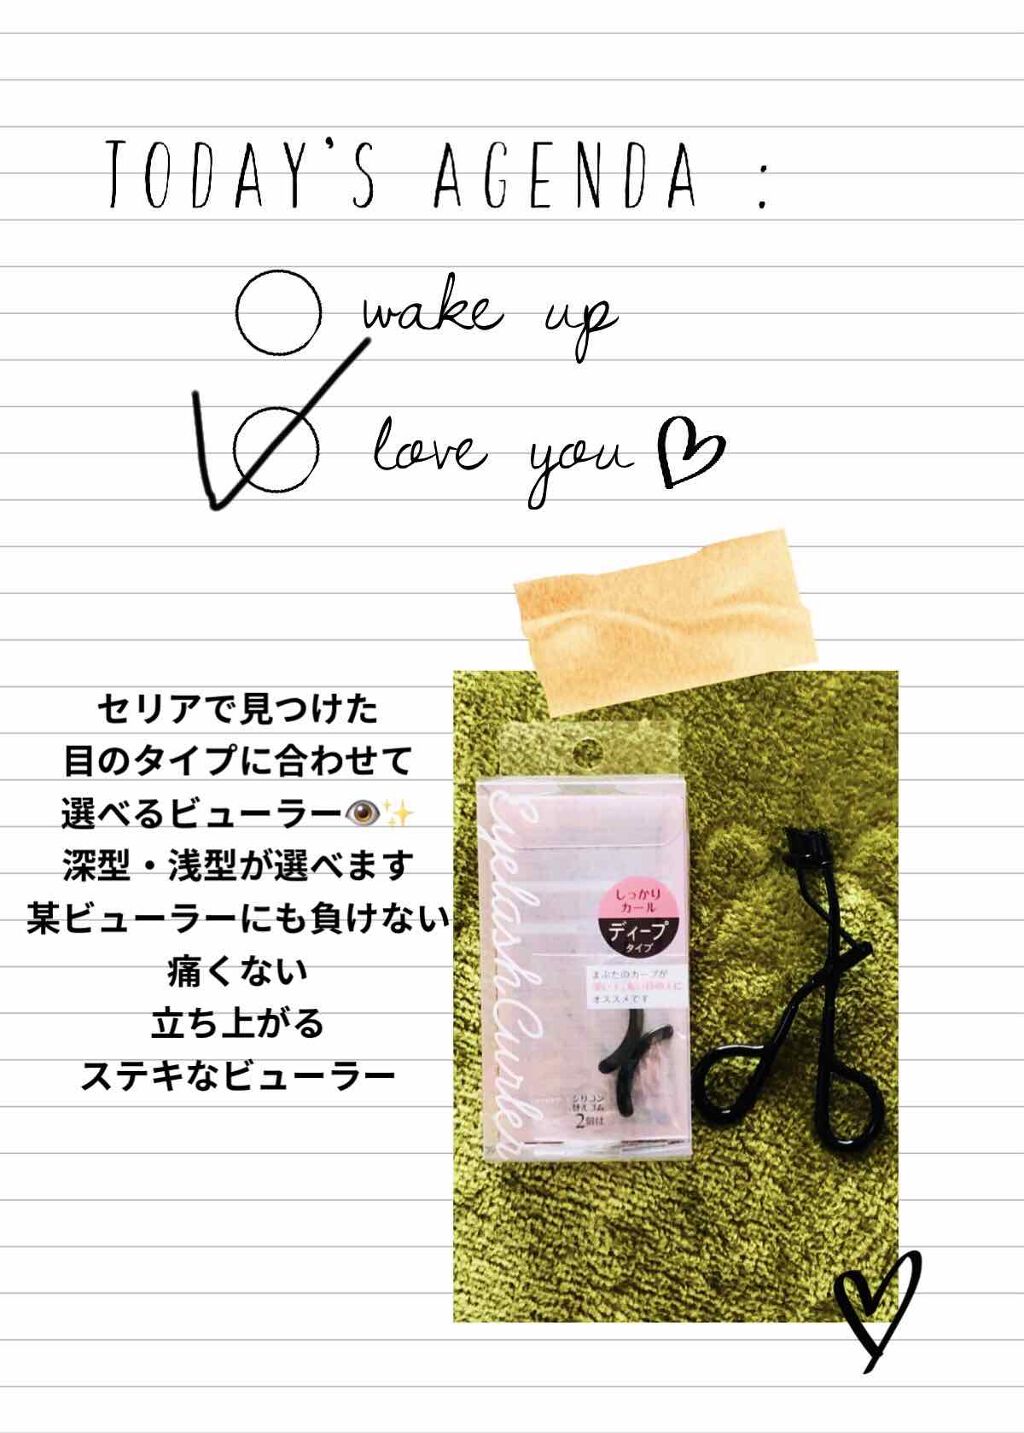 TODAY'S AGENDA :
wake up
love you
セリアで見つけた
目のタイプに合わせて
選べるビューラー👁️✨
深型・浅型が選べます
某ビューラーにも負けない
痛くない
立ち上がる
ステキなビューラー
Eyelash Curler
しっかり
カール
ディープ
タイプ
まぶたのカーブが
オススメです
シリコン
替えゴム
2個付